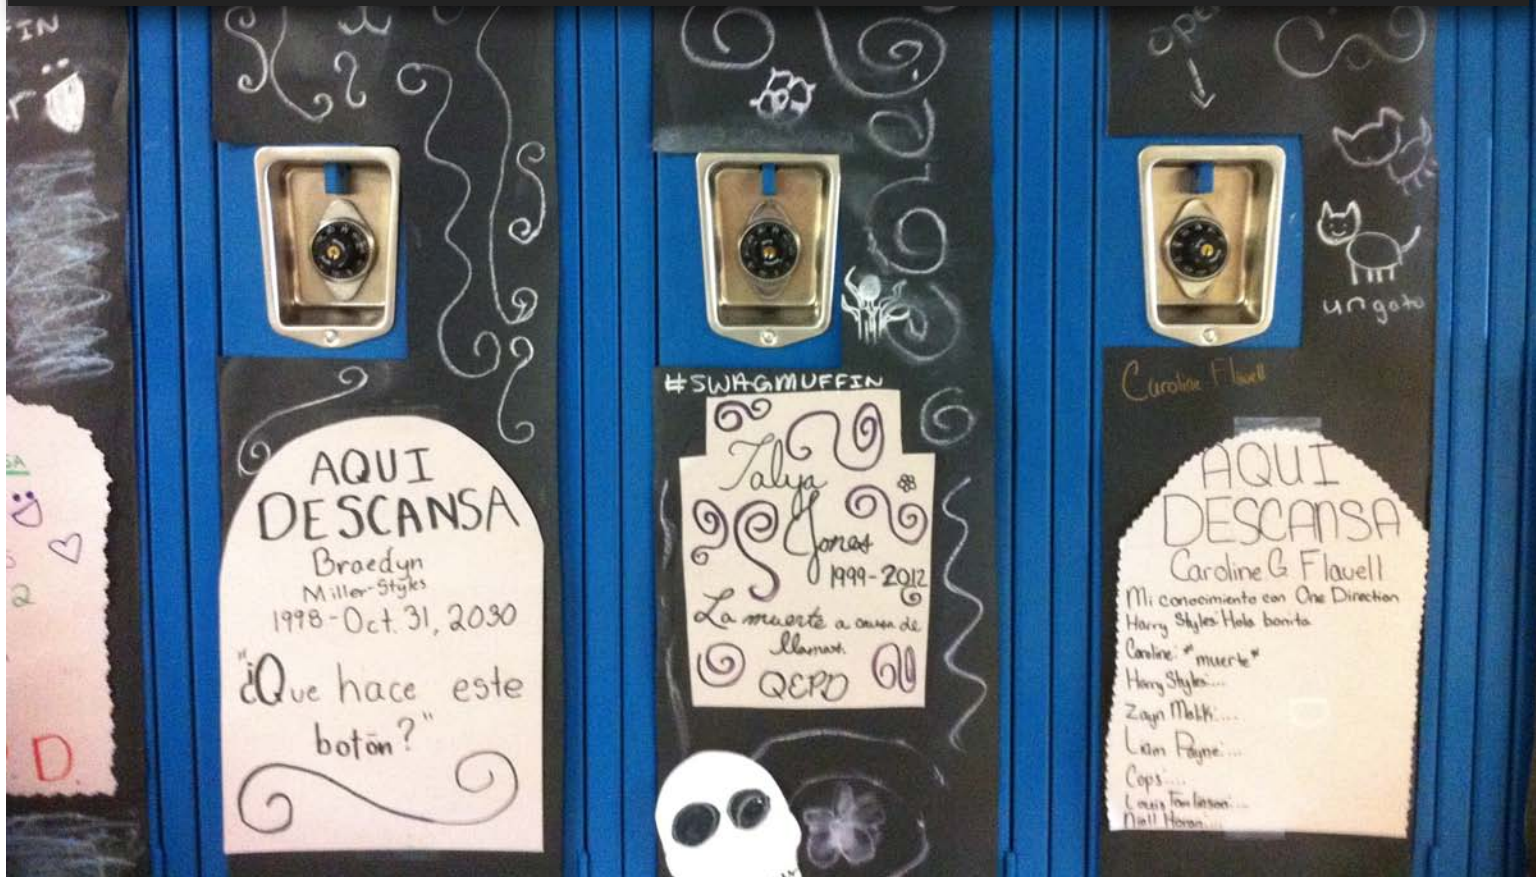 FIN
r
SA
2
D.
AQUI
DESCANSA
Braedyn
Miller-Styles
1998-Oct. 31, 2030
"¿Que hace este
botón?"
#SWAGMUFFIN
Talya
Jones
1999-2012
La muerte a causa de
llamas.
QEPD
OPEN
un gato
Caroline Flavell
AQUI
DESCANSA
Caroline G Flavell
Mi conocimiento con One Direction
Harry Styles: Hola bonita
Caroline: *muerte*
Harry Styles:...
Zayn Malik:...
Liam Payne:...
Cops:...
Louis Tomlinson:...
Niall Horan:...